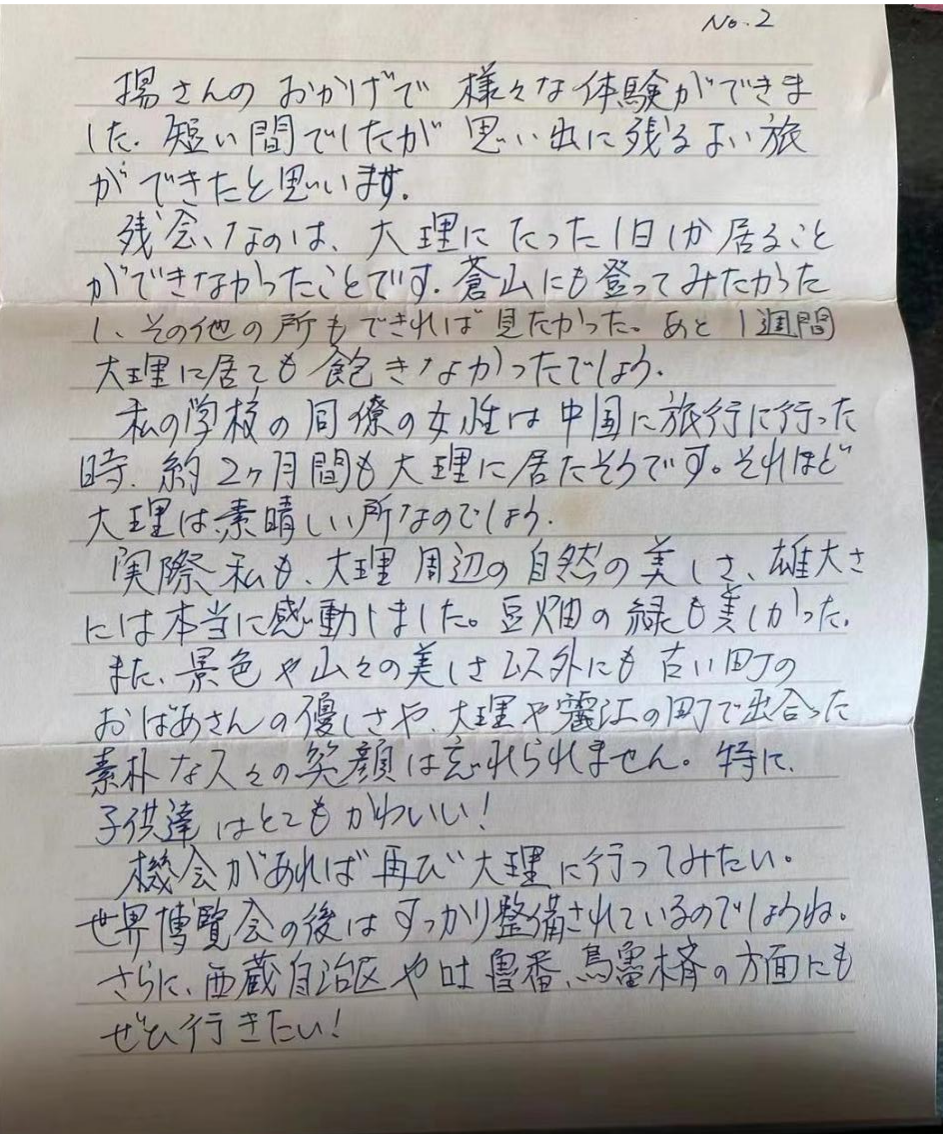 No.2
楊さんのおかげで様々な体験ができま
した. 短い間でしたが思い出に残るよい旅
ができたと思います.
残念なのは、大理にたった1日しか居ること
ができなかったことです. 蒼山にも登ってみたかった
し、その他の所もできれば見たかった。あと1週間
大理に居ても飽きなかったでしょう.
私の学校の同僚の女性は中国に旅行に行った
時、約2ヶ月間も大理に居たそうです。それほど
大理は素晴しい所なのでしょう.
実際私も、大理周辺の自然の美しさ、雄大さ
には本当に感動しました。豆畑の緑も美しかった.
また、景色や山々の美しさ以外にも古い町の
おばあさんの優しさや、大理や麗江の町で出合った
素朴な人々の笑顔は忘れられません。特に、
子供達はとてもかわいい!
機会があれば再び大理に行ってみたい。
世界博覧会の後はすっかり整備されているのでしょうね。
さらに、西蔵自治区や吐魯番、烏魯木斉の方面にも
ぜひ行きたい!